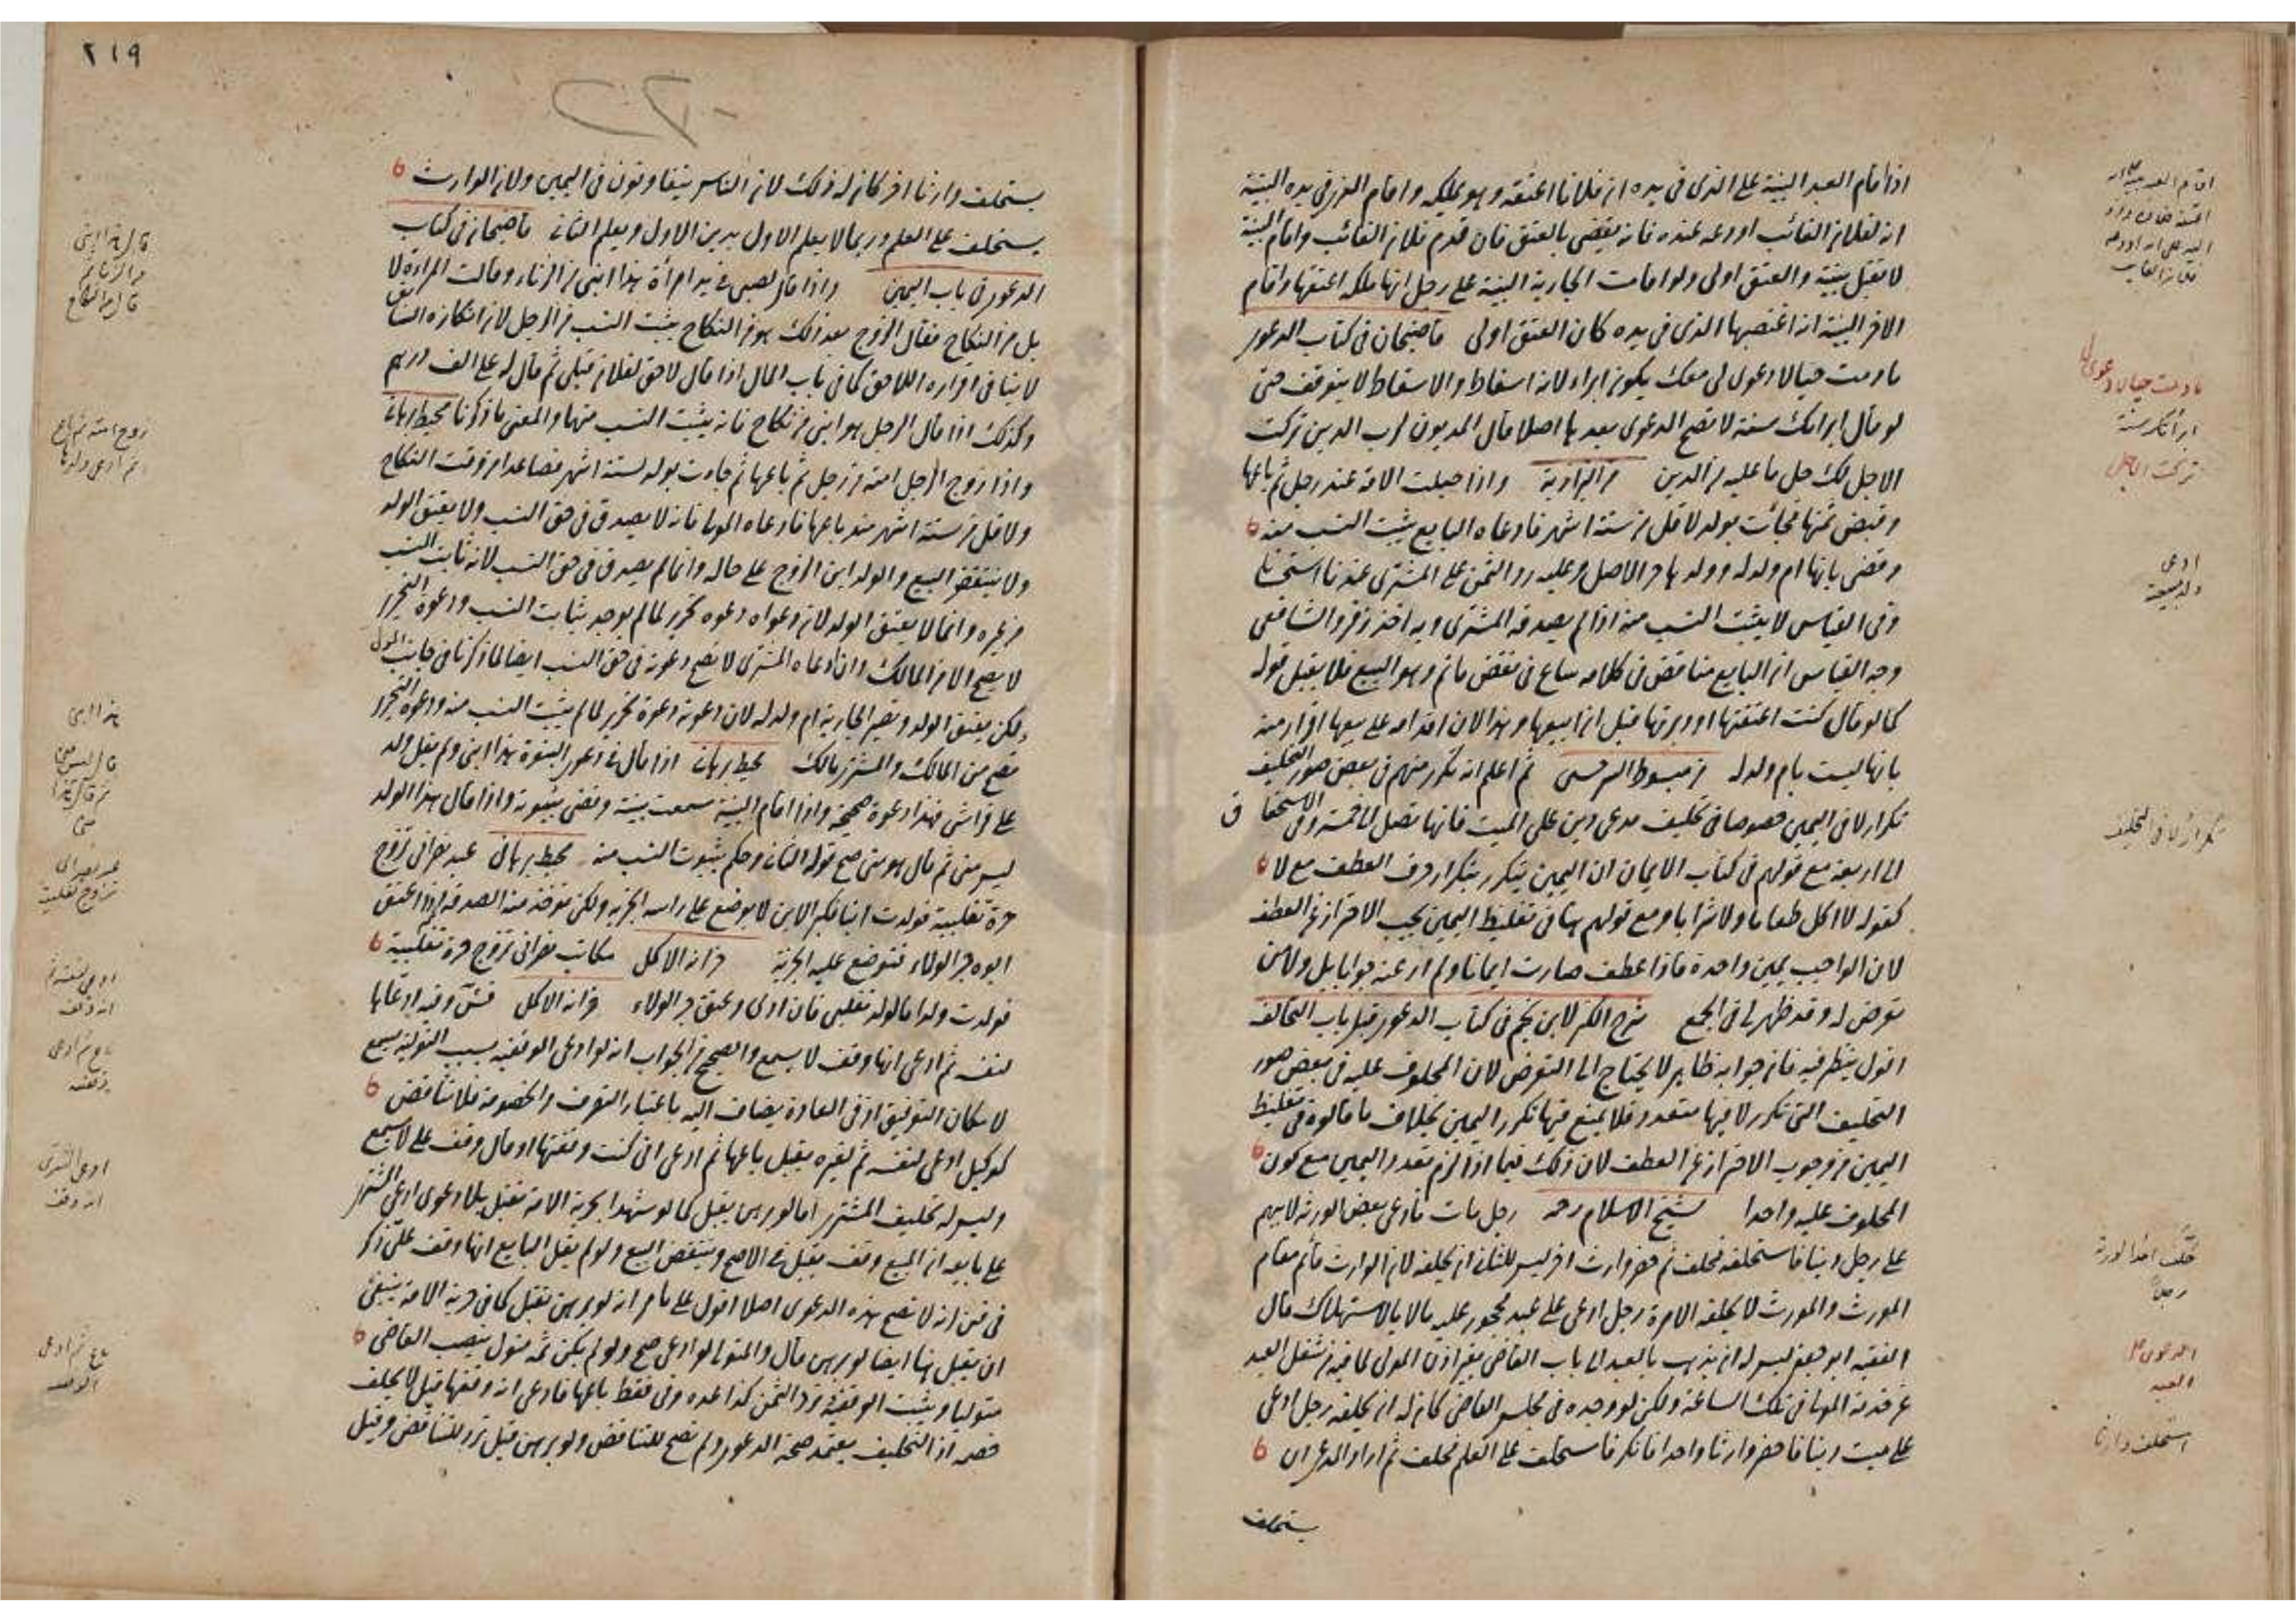 اذا اقام العبد البينة على الذى فى يده ان فلانا اعتقه وهو يملكه واقام الذى فى يده البينة
انه لفلان الغائب اودعه عنده فانه يقضى بالعتق فان قدم فلان الغائب واقام البينة
لا يقبل بينته والعتق اولى ولو اقامت الجارية البينة على رجل انها ملكه اعتقها واقام
الاخر البينة انه اغتصبها الذى فى يده كان العتق اولى قاضيخان فى كتاب الدعوى
ما دمت حيا لا دعوى لى معك يكون ابراء لانه اسقاط والاسقاط لا يتوقف حتى
لو قال ابرأتك سنة لا تصح الدعوى بعدها اصلا قال المديون لرب الدين تركت
الاجل لك حل ما عليه من الدين من البزازية واذا حبلت الامة عند رجل ثم باعها
وقبض ثمنها فجائت بولد لاقل من ستة اشهر فادعاه البايع يثبت النسب منه
وقضى بانها ام ولد له وولدها حر الاصل وعليه رد الثمن على المشترى عندنا استحسانا
وفى القياس لا يثبت النسب منه اذا لم يصدقه المشترى وبه اخذ زفر والشافعى
وجه القياس ان البايع مناقض فى كلامه ساع فى نقض ما تم وهو البيع فلا يقبل قوله
كما لو قال كنت اعتقتها او دبرتها قبل ان ابيعها وهذا لان اقدامه على بيعها اقرار منه
بانها ليست بام ولد له من مبسوط السرخسى ثم اعلم انه تكرر منهم فى بعض صور التحليف
تكرار لا فى اليمين خصوصا فى تحليف مدعى دين على الميت فانها تصل الى خمسة وفى الاستحقاق
الى اربعة مع قولهم فى كتاب الايمان ان اليمين يتكرر بتكرار حرف العطف مع لا
كقوله لا اكل طعاما ولا شرابا ومع قولهم هنا فى تغليظ اليمين يجب الاحتراز عن العطف
لان الواجب يمين واحدة فاذا عطف صارت ايمانا ولم ار عنه جوابا بل ولا من
تعرض له وقد ظهر لى فى الجمع شرح الكنز لابن نجيم فى كتاب الدعوى قبل باب التحالف
اقول ينظر فيه فان جوابه ظاهر لا يحتاج الى التعرض لان المحلوف عليه فى بعض صور
التحليف التى تكرر لا فيها متعدد فلا يمنع فيها تكرر اليمين بخلاف ما قالوه فى تغليظ
اليمين من وجوب الاحتراز عن العطف لان ذلك فيما اذا لزم تعدد اليمين مع كون
المحلوف عليه واحدا لشيخ الاسلام رحمه رجل مات فادعى بعض الورثة لابيهم
على رجل دينا فاستحلفه فحلف ثم حضر وارث اخر ليس للثانى ان يحلفه لان الوارث قائم مقام
المورث والمورث لا يحلفه الا مرة رجل ادعى على عبد محجور عليه مالا بالاستهلاك قال
الفقيه ابو جعفر ليس له ان يذهب بالعبد الى باب القاضى بغير اذن المولى لما فيه من شغل العبد
عن خدمة المولى فى تلك الساعة ولكن لو وجده فى مجلس القاضى كان له ان يحلفه رجل ادعى
على ميت دينا فاحضر وارثا واحدا فانكر فاستحلف على العلم فحلف ثم اراد المدعى ان
يستحلف
تكرار لا فى التحليف
ما دمت حيا لا دعوى لى
ابرأتك سنة
تركت الاجل
استحلف وارثا
٢١٩
يستحلف وارثا اخر كان له ذلك لان الناس يتفاوتون فى اليمين ولان الوارث
يستحلف على العلم وربما لا يعلم الاول بدين الاول ويعلم الثانى قاضيخان فى كتاب
الدعوى فى باب اليمين واذا قال لصبى فى يد امرأة هذا ابنى من الزناء وقالت المراءة لا
بل من النكاح فقال الزوج بعد ذلك هو من النكاح يثبت النسب من الرجل لان انكاره السابق
لا ينافى اقراره اللاحق كما فى باب المال اذا قال لا حق لفلان قبلى ثم قال له على الف درهم
وكذلك اذا قال الرجل هو ابنى من نكاح فانه يثبت النسب منهما والمعنى ما ذكرنا محيط برهانى
واذا زوج الرجل امته من رجل ثم باعها ثم جاءت بولد لستة اشهر فصاعدا من وقت النكاح
ولاقل من ستة اشهر منذ باعها فادعاه المولى فانه لا يصدق فى حق النسب ولا يعتق الولد
ولا ينتقض البيع والولد ابن الزوج على حاله وانما لم يصدق فى حق النسب لانه ثابت النسب
من غيره وانما لا يعتق الولد لان دعواه دعوة تحرير لما لم يوجد ثبات النسب ودعوة التحرير
لا يصح الا من المالك وان ادعاه المشترى لا تصح دعوته فى حق النسب ايضا لما ذكرنا فى جانب المولى
ولكن يعتق الولد وتصير الجارية ام ولد له لان دعوته دعوة تحرير لما لم يثبت النسب منه ودعوة التحرير
تصح من المالك والمشترى مالك محيط برهانى اذا قال فى دعوى البنوة هذا ابنى ولم يقل ولد
على فراشى فهذا دعوة صحيحة واذا اقام البينة سمعت بينته وقضى ببنوته واذا قال هذا الولد
ليس منى ثم قال هو منى صح قوله الثانى وحكم بثبوت النسب منه محيط برهانى عبد نصرانى تزوج
حرة تغلبية فولدت ابنا فكبر الابن لا يوضع على راسه الجزية ولكن يؤخذ منه الصدقة اذا اعتق
ابوه جر الولاء فتوضع عليه الجزية خزانة الاكمل مكاتب نصرانى تزوج حرة تغلبية
فولدت ولدا فالولد تغلبى فان ادى وعتق جر الولاء خزانة الاكمل وفيه ادعاها
لنفسه ثم ادعى انها وقف لا يسمع والصحيح من الجواب انه لو ادعى الوقفية بسبب التولية يسمع
لامكان التوفيق اذ فى العادة يضاف اليه باعتبار التصرف والخصومة فلا تناقض
كوكيل ادعى لنفسه ثم لغيره يقبل باعها ثم ادعى انى كنت وقفتها او قال وقف على لا يسمع
وليس له تحليف المشترى اما لو برهن يقبل كما لو شهدا بحرية الامة تقبل بلا دعوى ادعى المشترى
على بايعه ان المبيع وقف يقبل فى الاصح وينتقض البيع ولو لم يقل البايع انها وقف على ذكر
فى انه لا تصح هذه الدعوى اصلا اقول على ما مر انه لو برهن تقبل كما فى حرية الامة ينبغى
ان يقبل هنا ايضا لو برهن قال والمتولى لو ادعى صح ولو لم يكن ثمة متول ينصب القاضى
متوليا ويثبت الوقفية ويرد الثمن كذا عده وفى فقط باعها فادعى انه وقفها قيل لا يحلف
خصمه اذ التحليف يعتمد صحة الدعوى ولم تصح للتناقض ولو برهن قيل ترد للتناقض وقيل